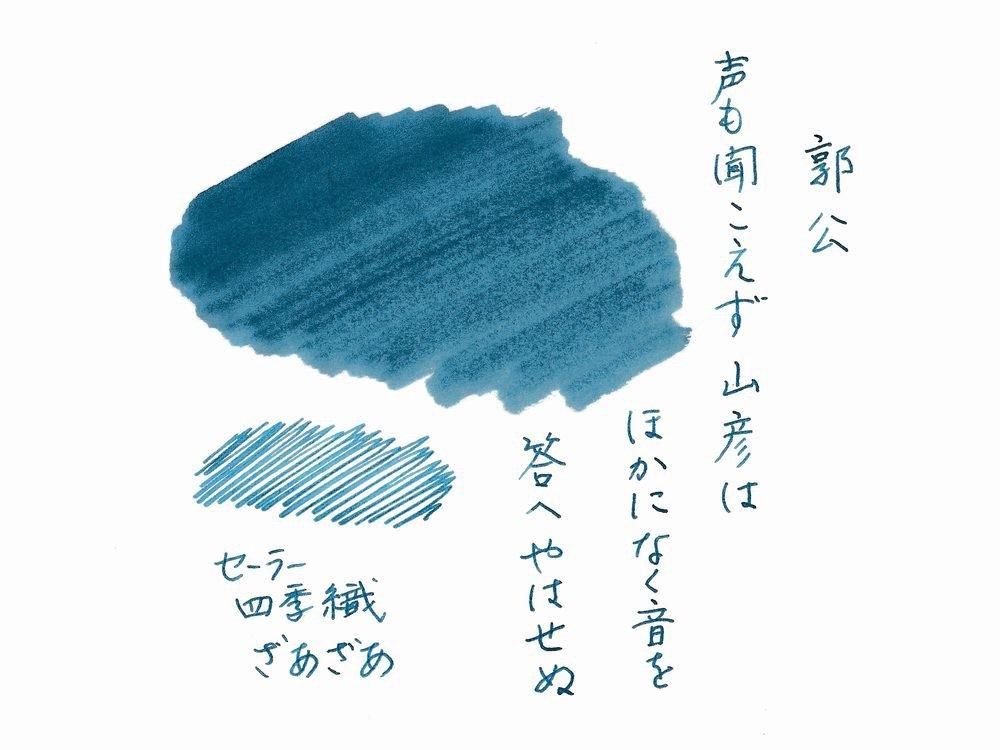 郭公
声も聞こえず山彦は
ほかになく音を
答へやはせぬ
セーラー
四季織
ざあざあ